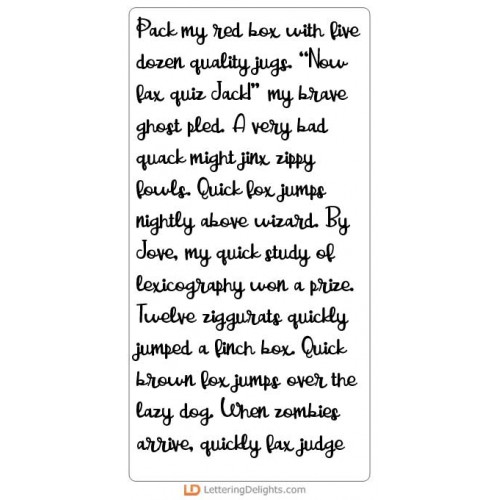 Pack my red box with five
dozen quality jugs. “Now
fax quiz Jack!” my brave
ghost pled. A very bad
quack might jinx zippy
fowls. Quick fox jumps
nightly above wizard. By
Jove, my quick study of
lexicography won a prize.
Twelve ziggurats quickly
jumped a finch box. Quick
brown fox jumps over the
lazy dog. When zombies
arrive, quickly fax judge
LD LetteringDelights.com